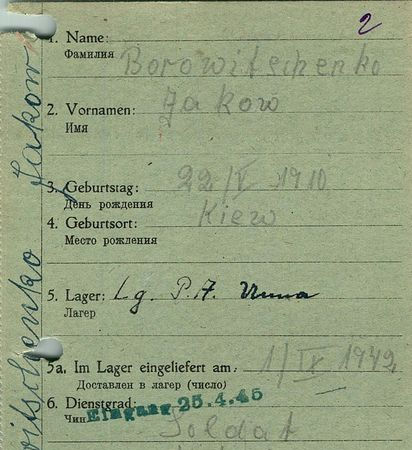 2
1. Name: Borowitschenko
Фамилия
2. Vornamen: Jakow
Имя
3. Geburtstag: 22/V 1910
День рождения
4. Geburtsort: Kiew
Место рождения
5. Lager: Lg. P.A. Unna
Лагер
5a. Im Lager eingeliefert am: 1/IX 1942
Доставлен в лагер (число)
6. Dienstgrad: Soldat
Чин
Eingang 25.4.45
Jakow